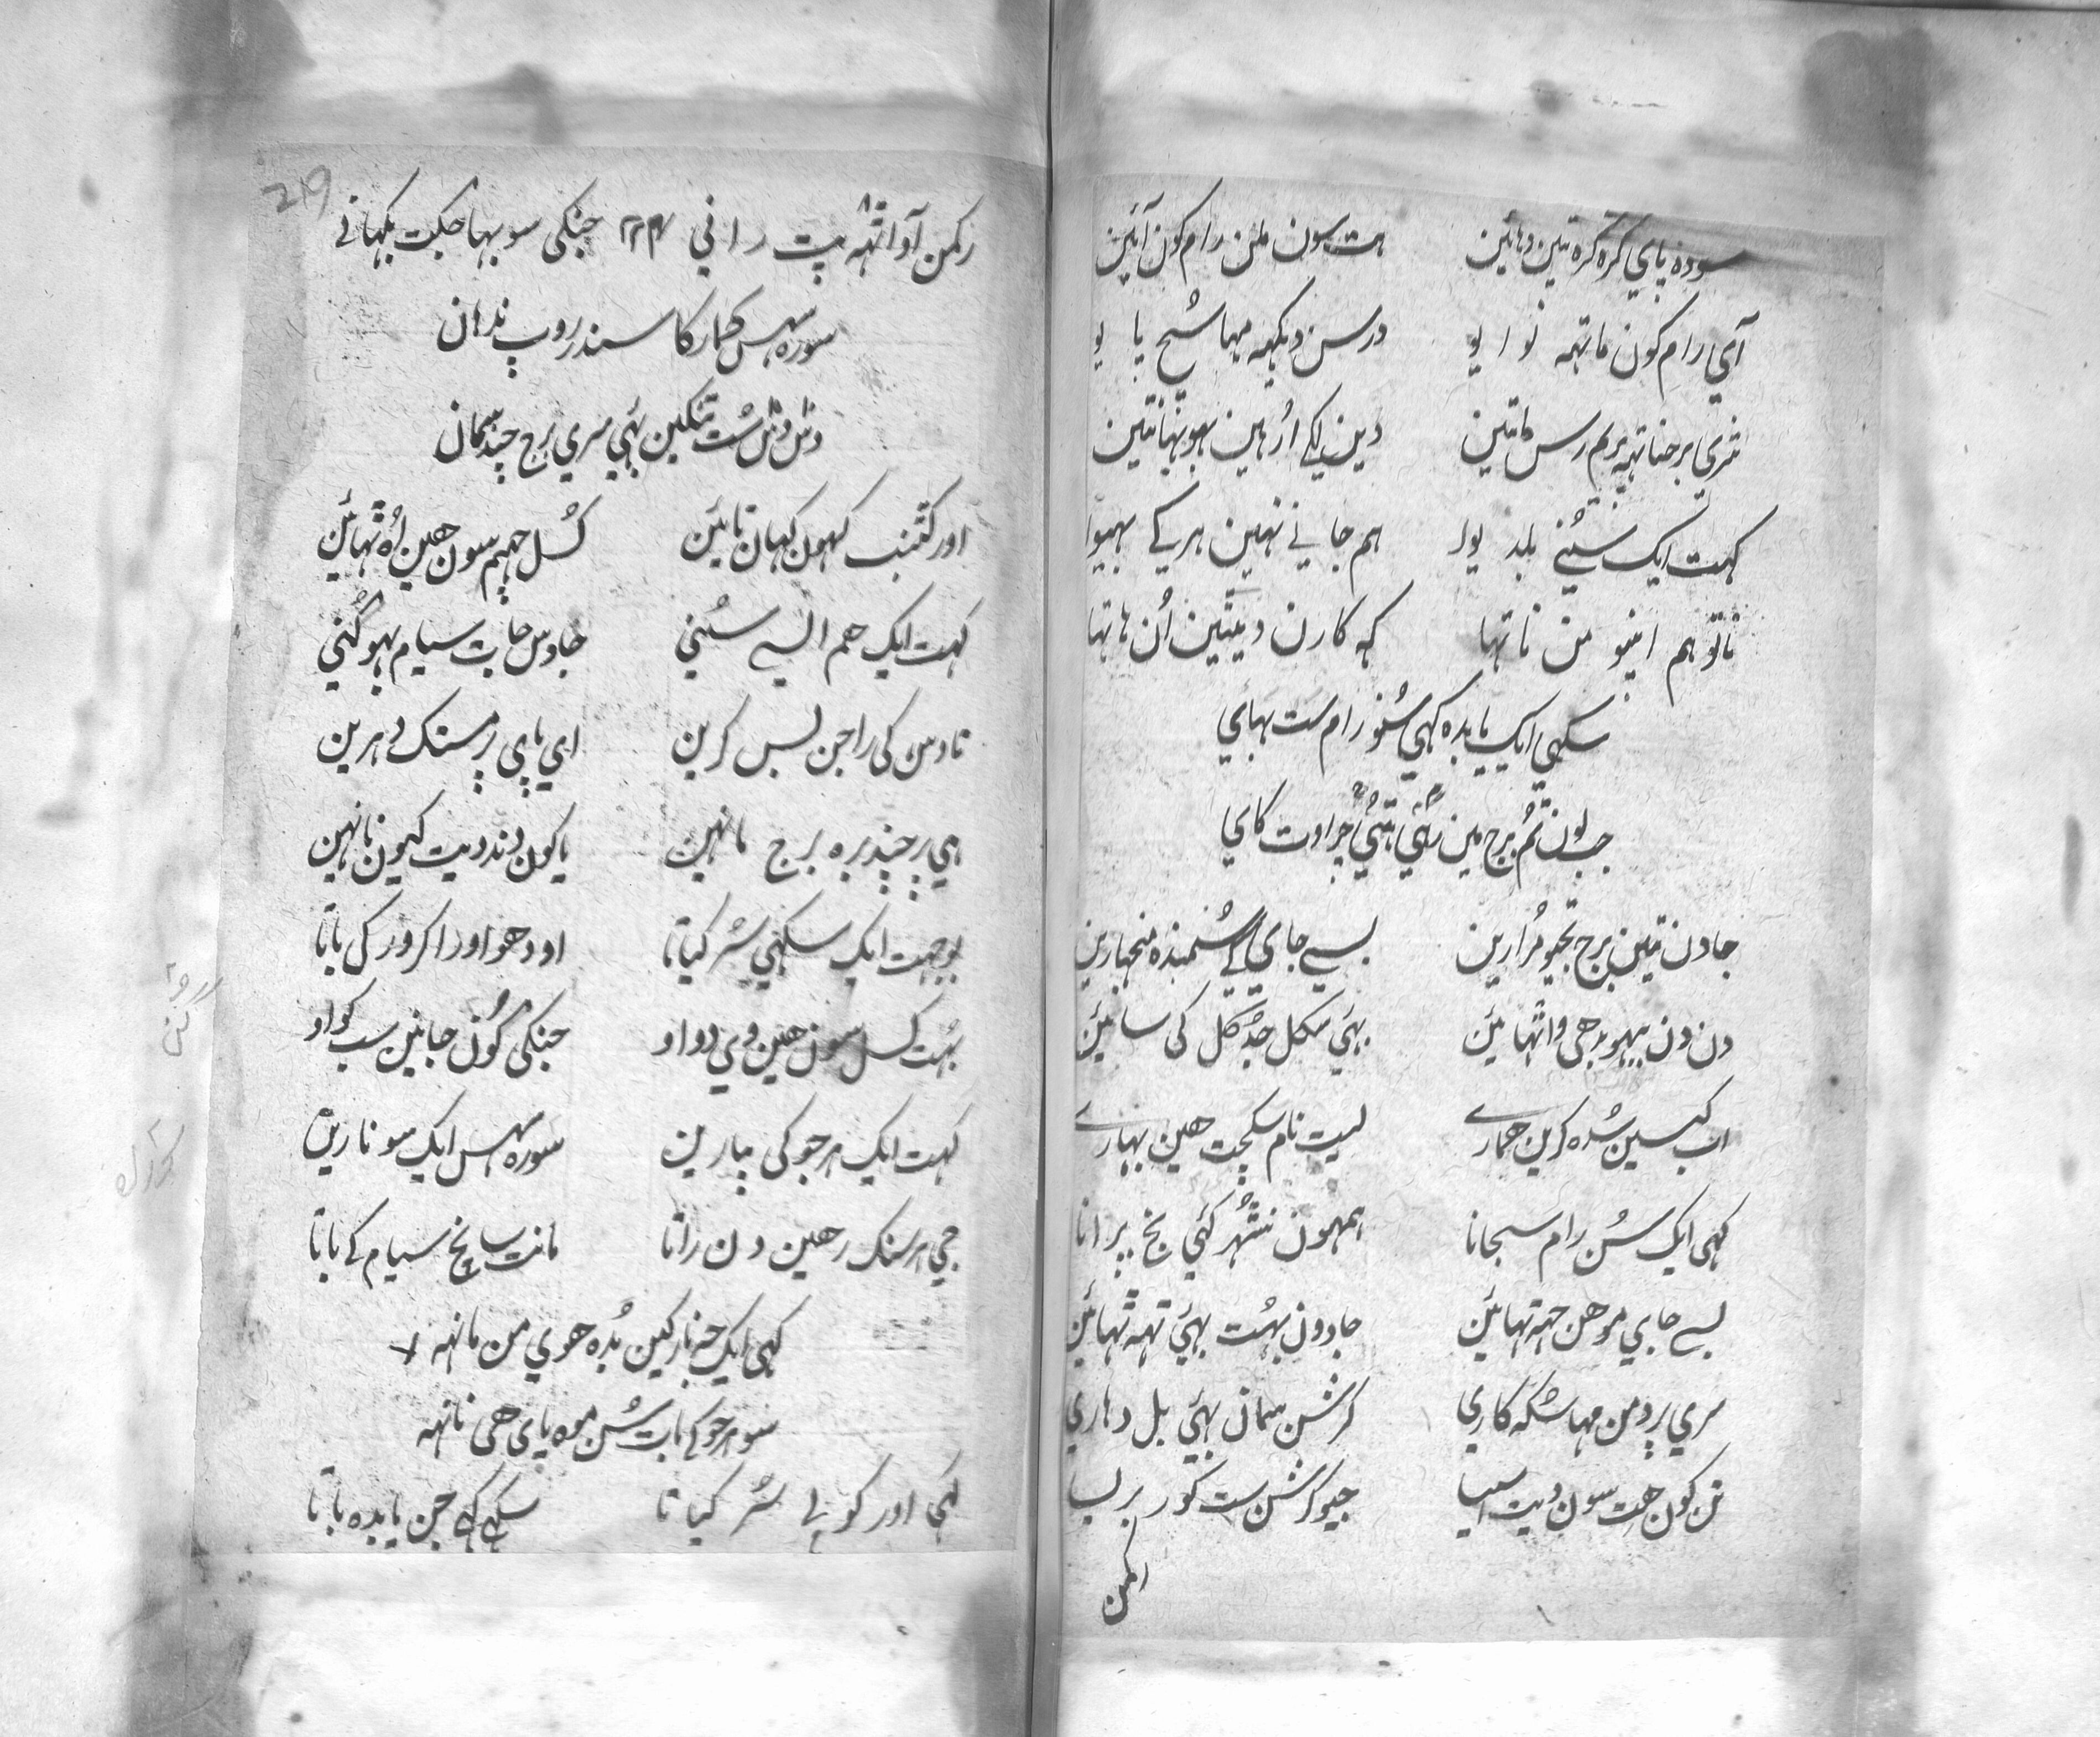 سوده پاي کره کره تین دهائین ہت سون ملن رام کون آئین
آي رام کون ماتهه نوايو درس دیکهه مهاسکہ پایو
شري برجناتهہ پریم رس ماتین دین لگے اُر هین بهو بهانتین
کہت ایک سُنیے بلدیوا ہم جانے نهین ہرکے بهیوا
ناتو ہم اپنو من ناتها کہ کارن دیتین اُن هاتها
سکهي ایک یا بده کہي سُنو رام ست بهاي
جب لون تُم برج مین رہی ہتی چراوت گاي
جادن تین برج تجیو مُرارین بسے جاي کے سُمندہ منجهارین
دن دن بیبهو بدهي واٹهائین بهئي سکل جدکل کی سائین
اب کیسین سُده کرین همارے لیت نام سکچت هین بهارے
کہی ایک سُن رام سجانا ہمہون نٹهُر کئي نج پرانا
بسے جاي موهن جهہ ٹهائین جادون بهُت بهئي تهہ ٹهائین
سري پردمن مہاسُکہ کاري کرشن سمان بهئي بل دهاري
تن کون هت سون دیت اسیسا جیو کرشن ست کور بریسا
رکمن
رکمن آو اٹهہ پٹ راني جنکي سوبها جکت بکهاني
سوره سہس کمارکا سندر روپ ندهان
دس دس سُت تنکین بهي سري برج چند سمان
اور کٹنب کہون کہان تائین کُسل چهیم سون هین اُه ٹهائین
کہت ایک هم ایسے سُني جادس جاپت سیام بهوگُني
تادس کی راجن بس کرین اي پاي پر مستک دهرین
هي پرچند بره برج مانهین یاکون دند دیت کیون نانهین
بوجهت ایک سکهي سُر کیاتا اودهو اور اکرور کی باتا
بهُت کسل سون هین وي دواو جنکي گُون جانین سب کواو
کہت ایک ہرجو کی پیارین سوره سہس ایک سو نارین
جي ہر سنگ رهین دن راتا مانت سانچ سیام کے باتا
کہی ایک جے نارکین بُده هوي من مانهہ
سو ہرجو کے بات سُن موه پاي هی نانهہ
کہي اور کوپی سُر کیاتا سکهے کہے جن یابده باتا